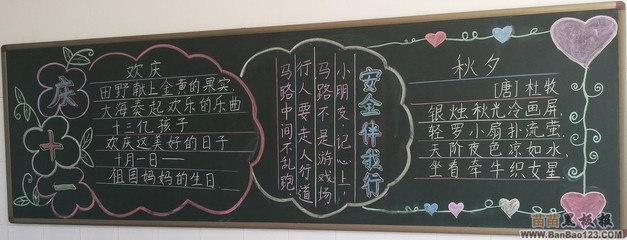 庆
十
一
欢庆
田野献上金黄的果实
大海奏起欢乐的乐曲
十三亿孩子
欢庆这美好的日子
十月一日——
祖国妈妈的生日
安全伴我行
小朋友记心上,
马路不是游戏场
行人要走人行道
马路中间不乱跑
秋夕
[唐]杜牧
银烛秋光冷画屏,
轻罗小扇扑流萤.
天阶夜色凉如水,
坐看牵牛织女星.
苗苗黑板报
www.BanBao123.com